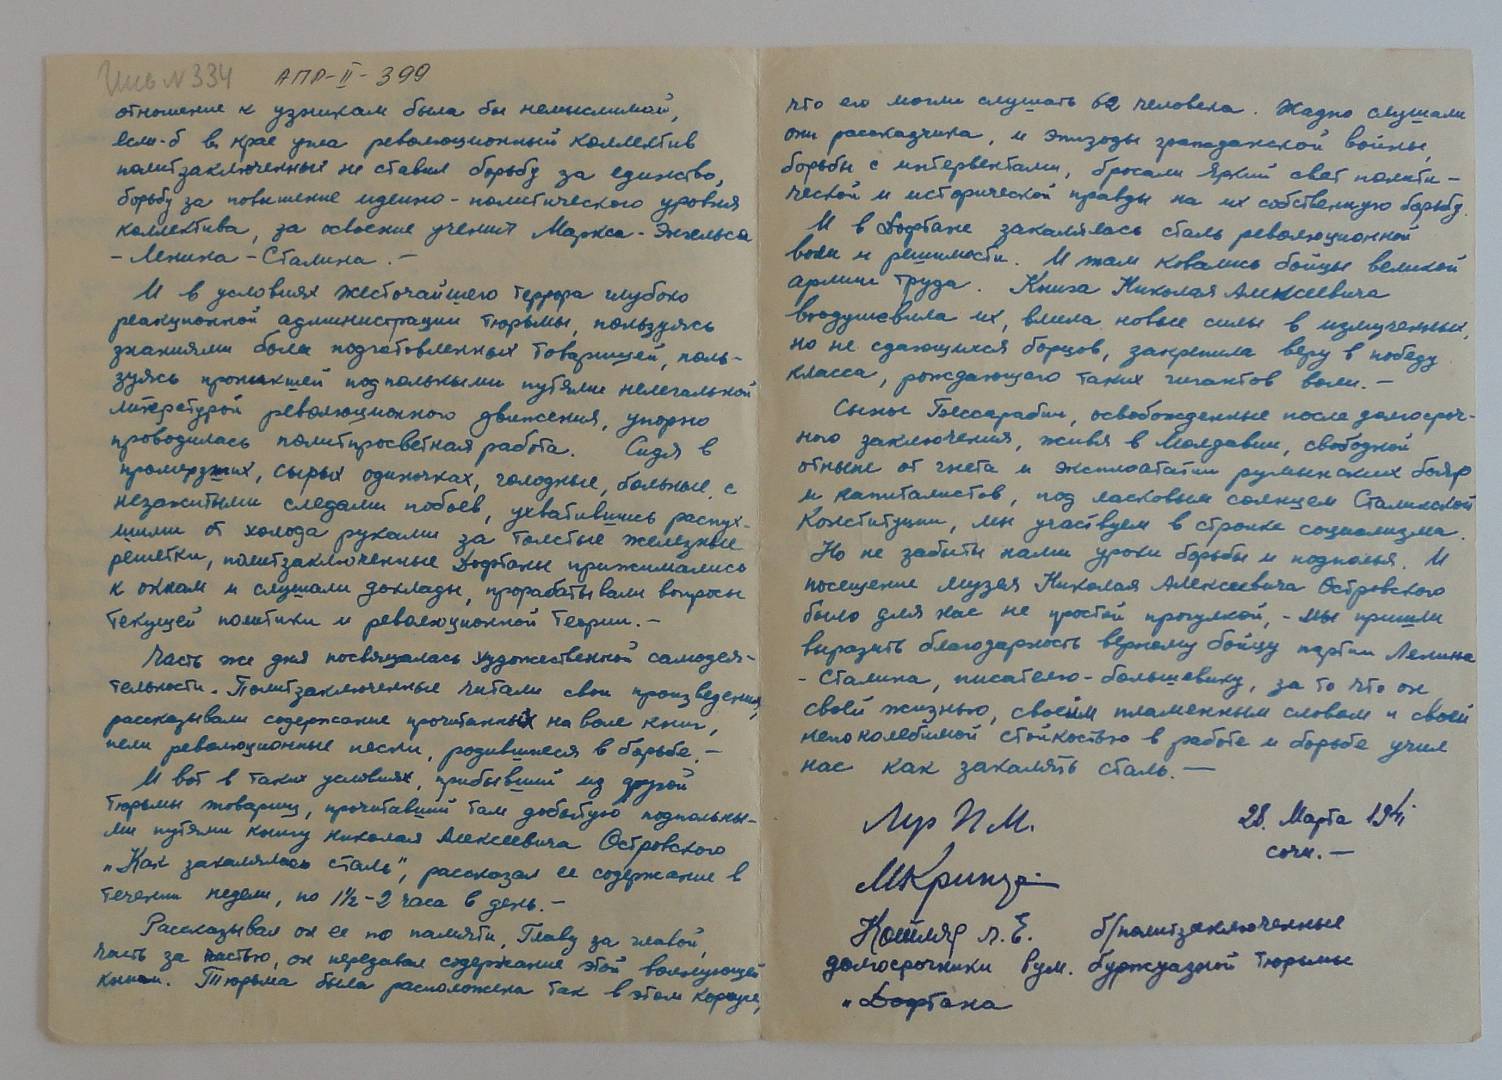 Инв N 334 АПР-II-399
отношение к узникам была бы немыслимой,
если-б в крае угла революционный коллектив
политзаключенных не ставил борьбу за единство,
борьбу за повышение идейно-политического уровня
коллектива, за освоение учения Маркса-Энгельса
-Ленина-Сталина.-
И в условиях жесточайшего террора глубоко
реакционной администрации тюрьмы, пользуясь
знаниями более подготовленных товарищей, поль-
зуясь проникшей подпольными путями нелегальной
литературой революционного движения, упорно
проводилась политпросветная работа. Сидя в
промерзших, сырых одиночках, голодные, больные, с
незажитыми следами побоев, ухватившись распух-
шими от холода руками за толстые железные
решетки, политзаключенные Дофтаны прижимались
к окнам и слушали доклады, прорабатывали вопросы
текущей политики и революционной теории.-
Часть же дня посвящалась художественной самодея-
тельности. Политзаключенные читали свои произведения,
рассказывали содержание прочитанных на воле книг,
пели революционные песни, родившиеся в борьбе.-
И вот в таких условиях, прибывший из другой
тюрьмы товарищ, прочитавший там добытую подпольны-
ми путями книгу Николая Алексеевича Островского
„Как закалялась сталь", рассказал ее содержание в
течении недели, по 1½-2 часа в день.-
Рассказывал он ее по памяти, Главу за главой,
часть за частью, он передавал содержание этой волнующей
книги. Тюрьма была расположена так в этом корпусе,
что его могли слушать 62 человека. Жадно слушали
они рассказчика, и эпизоды гражданской войны,
борьбы с интервентами, бросали яркий свет полити-
ческой и исторической правды на их собственную борьбу.
И в Дофтане закалялась сталь революционной
воли и решимости. И там ковались бойцы великой
армии труда. Книга Николая Алексеевича
воодушевила их, влила новые силы в измученных,
но не сдающихся борцов, закрепила веру в победу
класса, рождающего таких гигантов воли.-
Сыны Бессарабии, освобожденные после долгосроч-
ного заключения, живя в Молдавии, свободной
отныне от гнета и эксплоатации румынских бояр
и капиталистов, под ласковым солнцем Сталинской
Конституции, мы участвуем в стройке социализма.
Но не забыты нами уроки борьбы и подполья. И
посещение музея Николая Алексеевича Островского
было для нас не простой прогулкой,- мы пришли
выразить благодарность верному бойцу партии Ленина
-Сталина, писателю-большевику, за то что он
своей жизнью, своим пламенным словом и своей
непоколебимой стойкостью в работе и борьбе учил
нас как закалять сталь.-
Лур И М. 28. Марта 1941
Сочи.-
МКринц
Койляр Л. Е. б/политзаключенные
долгосрочники Рум. буржуазной тюрьмы
„Дофтана